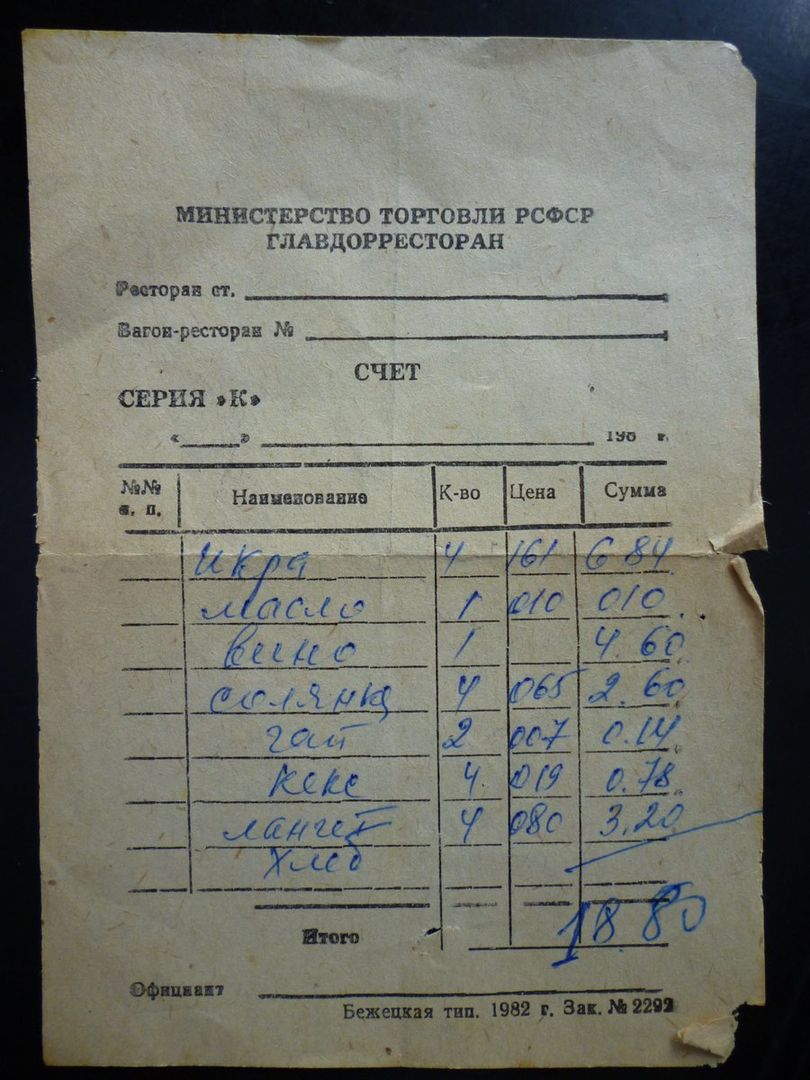 МИНИСТЕРСТВО ТОРГОВЛИ РСФСР
ГЛАВДОРРЕСТОРАН
Ресторан ст.
Вагон-ресторан №
СЧЕТ
СЕРИЯ «К»
« » 198 г.
№№ п. п. Наименование К-во Цена Сумма
Икра 4 161 6 84
масло 1 010 010
вино 1 4. 60
солянка 4 065 2. 60
чай 2 007 0.14
кекс 4. 019 0.78
лангет 4 080 3.20
Хлеб
Итого 18.80
Официант
Бежецкая тип. 1982 г. Зак. № 2292